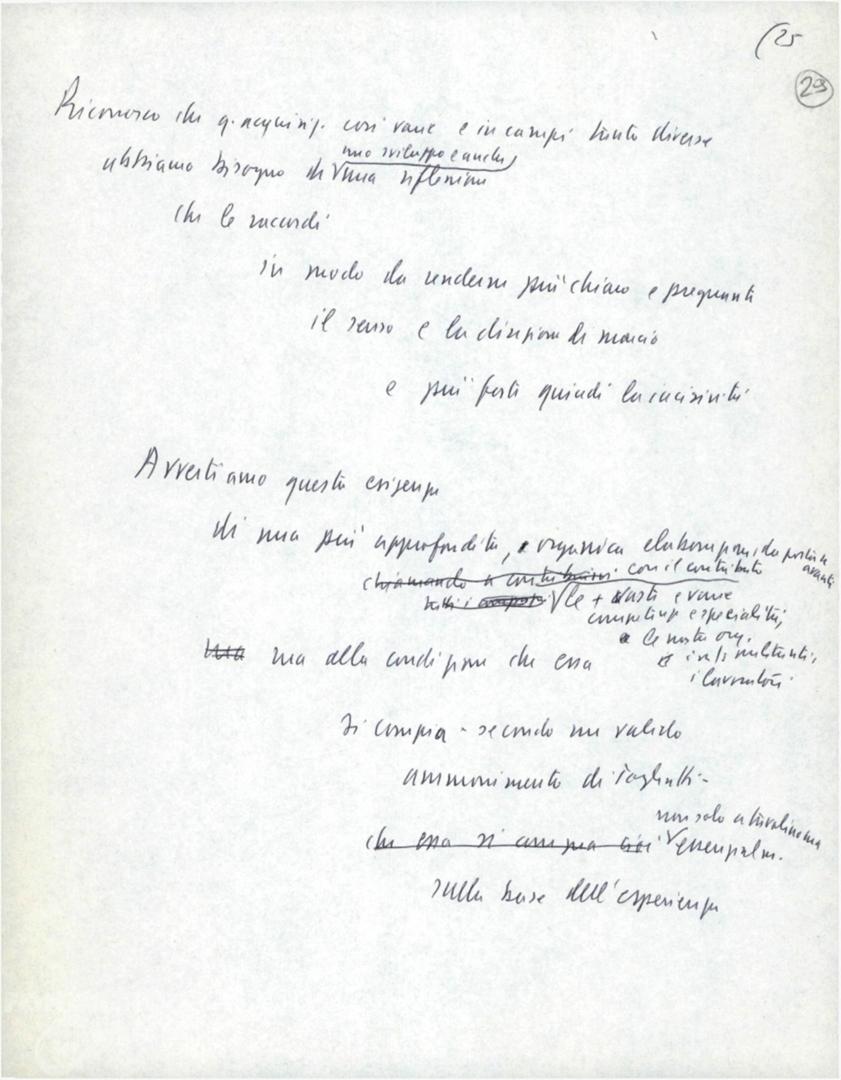 (25
29
Riconosco che q. acquisiz. così varie e in campi tanto diversi
uno sviluppo e anche
abbiamo bisogno di una riflessione
che le raccordi
in modo da renderne più chiaro e pregnante
il senso e la direzione di marcia
e più forte quindi la incisività
Avvertiamo questa esigenza
di una più approfondita, organica elaborazione, da portare
avanti
chiamando a contribuirvi con il contributo
tutti i le + vaste e varie
competenze e specialità,
le nostre org.
i militanti,
ma alla condizione che essa
i lavoratori
si compia - secondo un valido
ammonimento di Togliatti -
non solo a tavolino ma
che essa si compia essenzialm.
sulla base dell'esperienza